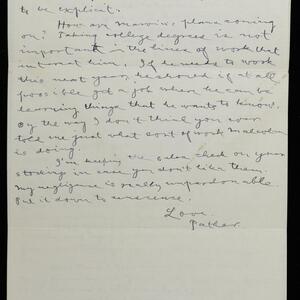 to be explicit.
How are Marvin's plans coming
on? Taking college degrees is not
important in the lines of work that
interest him. If he needs to work
this next year, he should if at all
possible get a job where he can be
learning things that he wants to know.
By the way I don't think you ever
told me just what sort of work Malcolm
is doing.
I'm keeping the sales check on your
stockings in case you don't like them.
My negligence is really unpardonable.
Put it down to senescence.
Love,
Father.